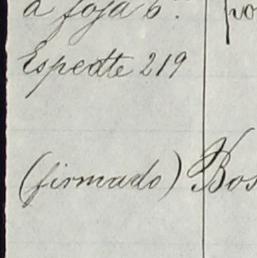 a foja 6.
Espedte 219
(firmado) Bos